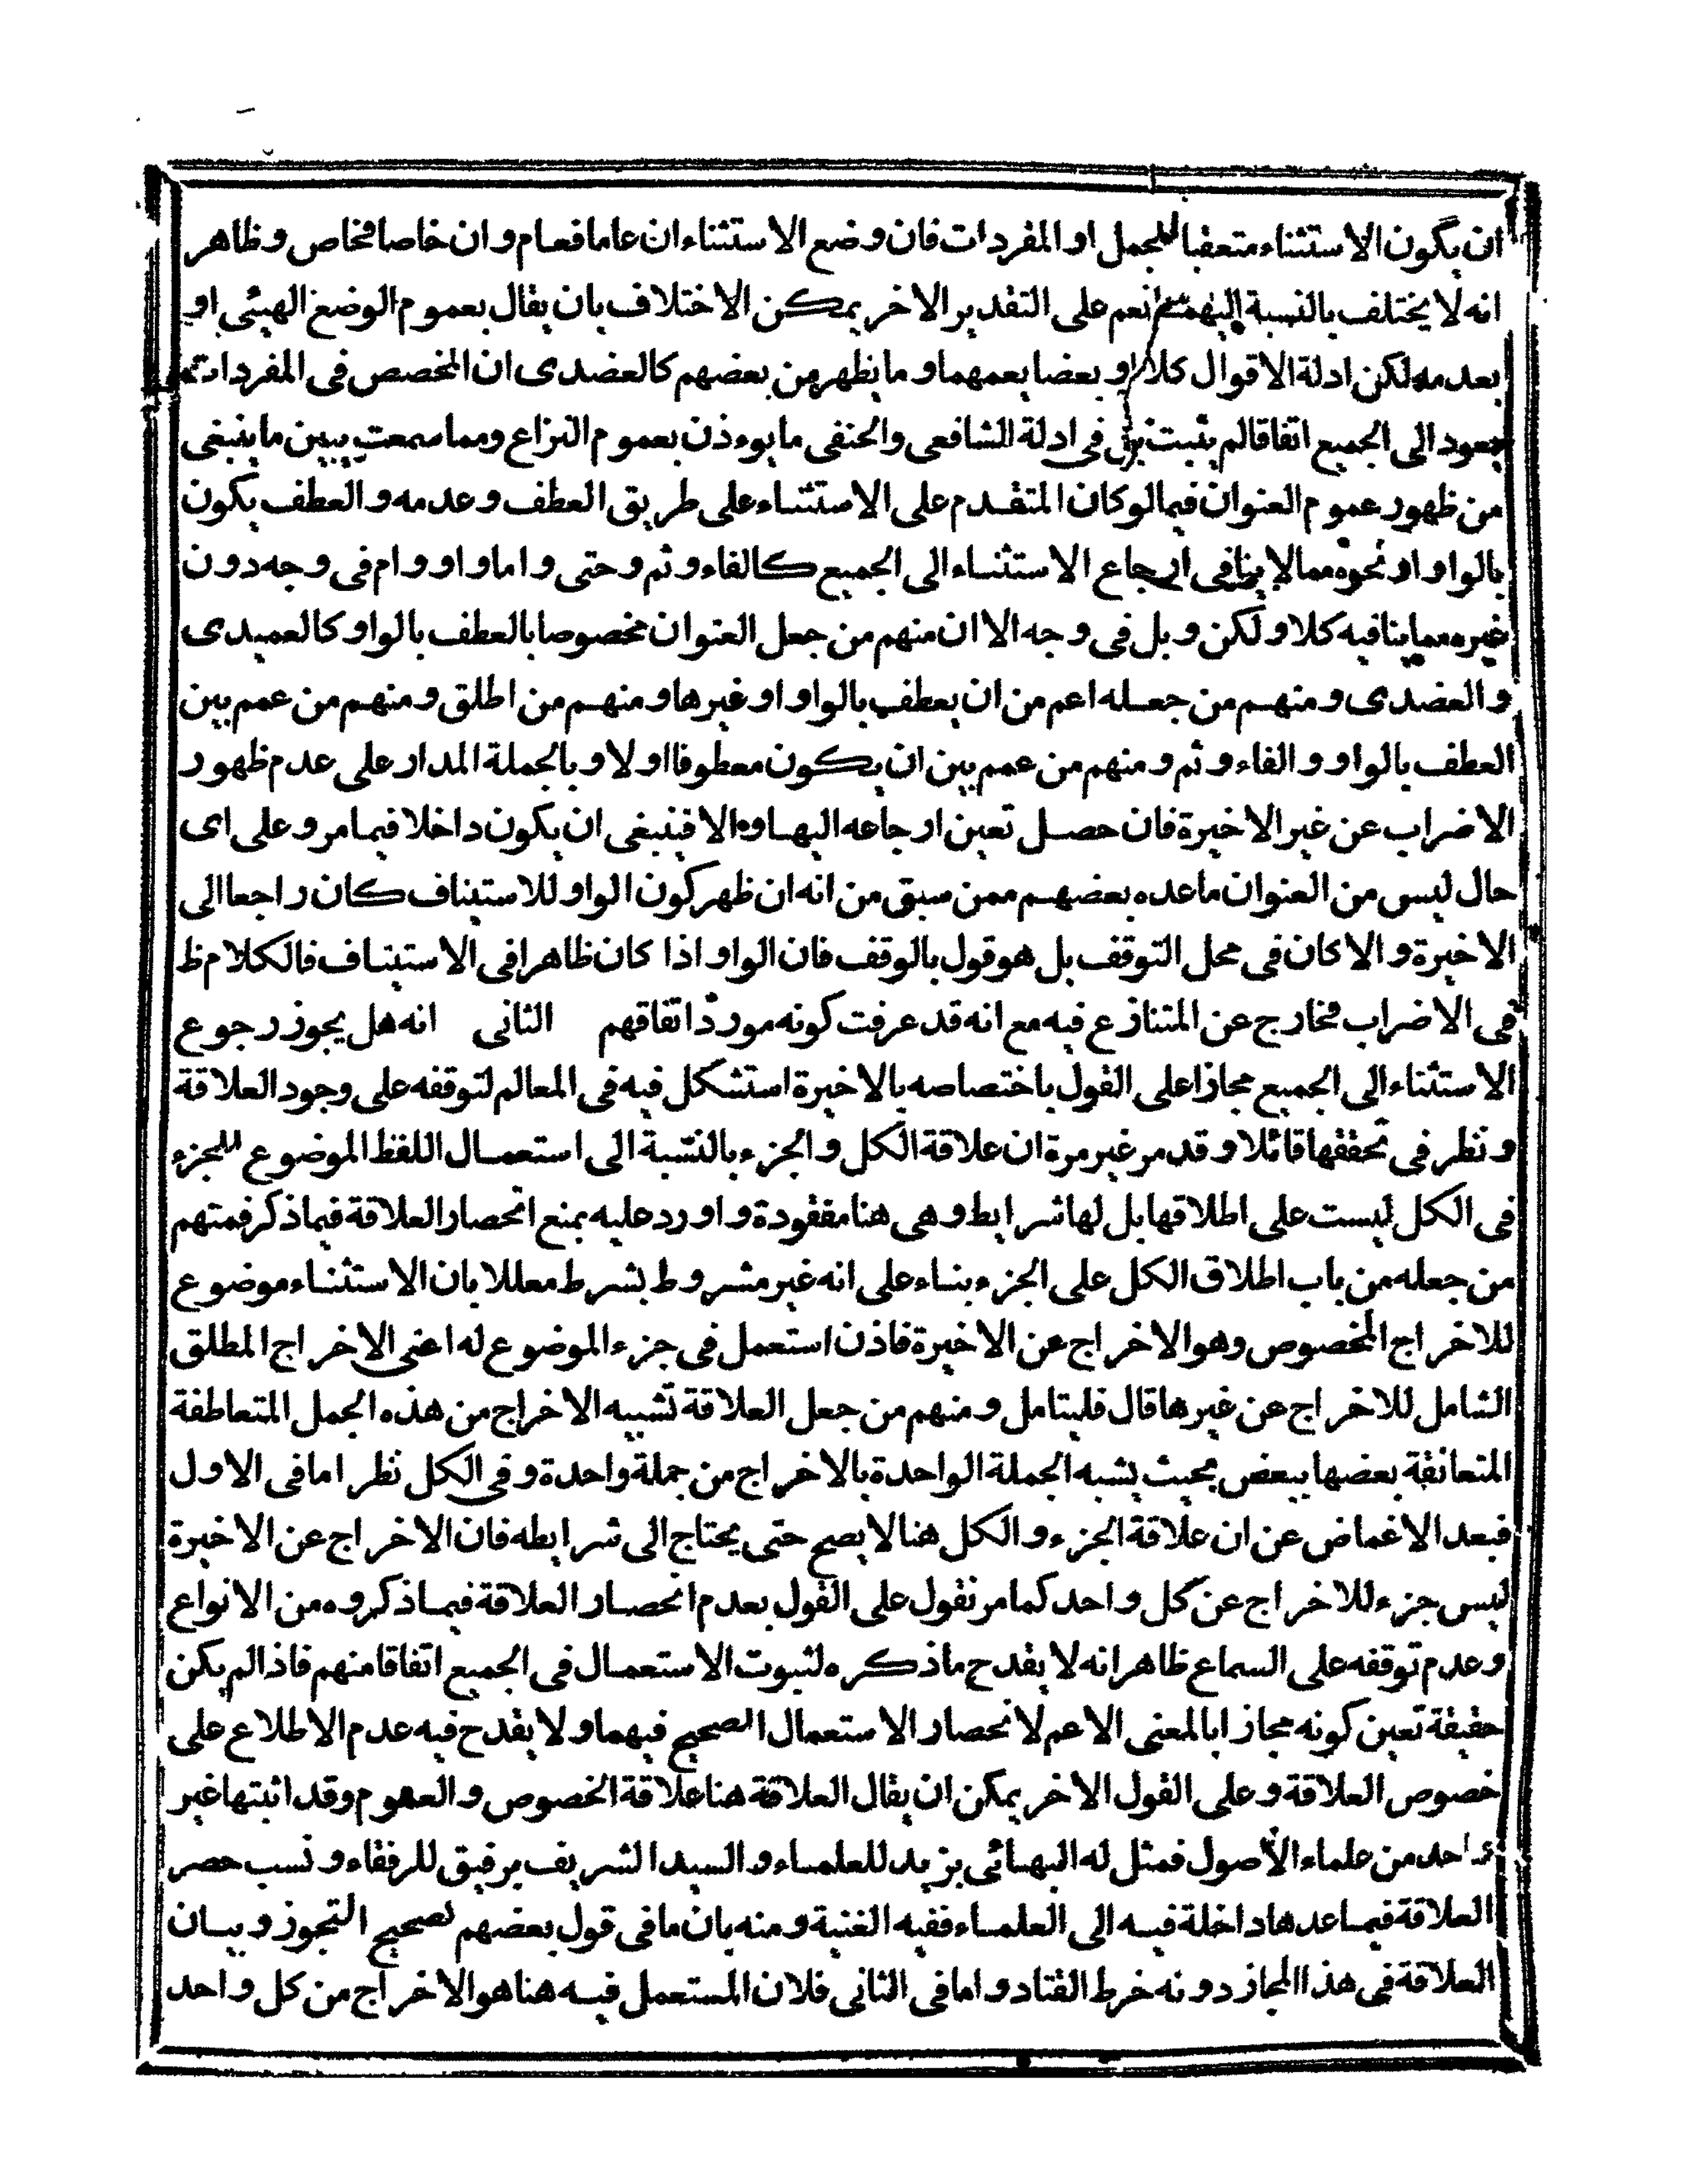 ان يكون الاستثناء متعقبا للجمل او المفردات فان وضع الاستثناء ان عاما فعام وان خاصا فخاص وظاهر
انه لا يختلف بالنسبة اليهما نعم على التقدير الاخر يمكن الاختلاف بان يقال بعموم الوضع الهيئى او
بعدمه لكن ادلة الاقوال كلا او بعضا يعمهما وما يظهر من بعضهم كالعضدى ان المخصص فى المفردات
يعود الى الجميع اتفاقا لم يثبت بل فى ادلة الشافعى والحنفى ما يوءذن بعموم النزاع ومما سمعت يبين ما ينبغى
من ظهور عموم العنوان فيما لو كان المتقدم على الاستثناء على طريق العطف وعدمه والعطف يكون
بالواو او نحوه مما لا ينافى ارجاع الاستثناء الى الجميع كالفاء وثم وحتى واما واو وام فى وجه دون
غيره مما ينافيه كلا ولكن وبل فى وجه الا ان منهم من جعل العنوان مخصوصا بالعطف بالواو كالعميدى
والعضدى ومنهم من جعله اعم من ان يعطف بالواو او غيرها ومنهم من اطلق ومنهم من عمم بين
العطف بالواو والفاء وثم ومنهم من عمم بين ان يكون معطوفا اولا وبالجملة المدار على عدم ظهور
الاضراب عن غير الاخيرة فان حصل تعين ارجاعه اليها والا فينبغى ان يكون داخلا فيما مر وعلى اى
حال ليس من العنوان ما عده بعضهم ممن سبق من انه ان ظهر كون الواو للاستيناف كان راجعا الى
الاخيرة والا كان فى محل التوقف بل هو قول بالوقف فان الواو اذا كان ظاهرا فى الاستيناف فالكلام ظ
فى الاضراب فخارج عن المتنازع فيه مع انه قد عرفت كونه مورد اتفاقهم الثانى انه هل يجوز رجوع
الاستثناء الى الجميع مجازا على القول باختصاصه بالاخيرة استشكل فيه فى المعالم لتوقفه على وجود العلاقة
ونظر فى تحققها قائلا وقد مر غير مرة ان علاقة الكل والجزء بالنسبة الى استعمال اللفظ الموضوع للجزء
فى الكل ليست على اطلاقها بل لها شرايط وهى هنا مفقودة واورد عليه بمنع انحصار العلاقة فيما ذكر فمنهم
من جعله من باب اطلاق الكل على الجزء بناء على انه غير مشروط بشرط معللا بان الاستثناء موضوع
للاخراج المخصوص وهو الاخراج عن الاخيرة فاذن استعمل فى جزء الموضوع له اعنى الاخراج المطلق
الشامل للاخراج عن غيرها قال فليتامل ومنهم من جعل العلاقة تشبيه الاخراج من هذه الجمل المتعاطفة
المتعانقة بعضها ببعض بحيث يشبه الجملة الواحدة بالاخراج من جملة واحدة وفى الكل نظر اما فى الاول
فبعد الاغماض عن ان علاقة الجزء والكل هنا لا يصح حتى يحتاج الى شرايطه فان الاخراج عن الاخيرة
ليس جزء للاخراج عن كل واحد كما مر نقول على القول بعدم انحصار العلاقة فيما ذكروه من الانواع
وعدم توقفه على السماع ظاهر انه لا يقدح ما ذكره لثبوت الاستعمال فى الجميع اتفاقا منهم فاذا لم يكن
حقيقة تعين كونه مجازا بالمعنى الاعم لانحصار الاستعمال الصحيح فيهما ولا يقدح فيه عدم الاطلاع على
خصوص العلاقة وعلى القول الاخر يمكن ان يقال العلاقة هنا علاقة الخصوص والعموم وقد اثبتها غير
واحد من علماء الاصول فمثل له البهائى بزيد للعلماء والسيد الشريف برفيق للرفقاء ونسب حصر
العلاقة فيما عدها داخلة فيه الى العلماء ففيه الغنية ومنه بان ما فى قول بعضهم تصحيح التجوز وبيان
العلاقة فى هذا المجاز دونه خرط القتاد واما فى الثانى فلان المستعمل فيه هنا هو الاخراج من كل واحد